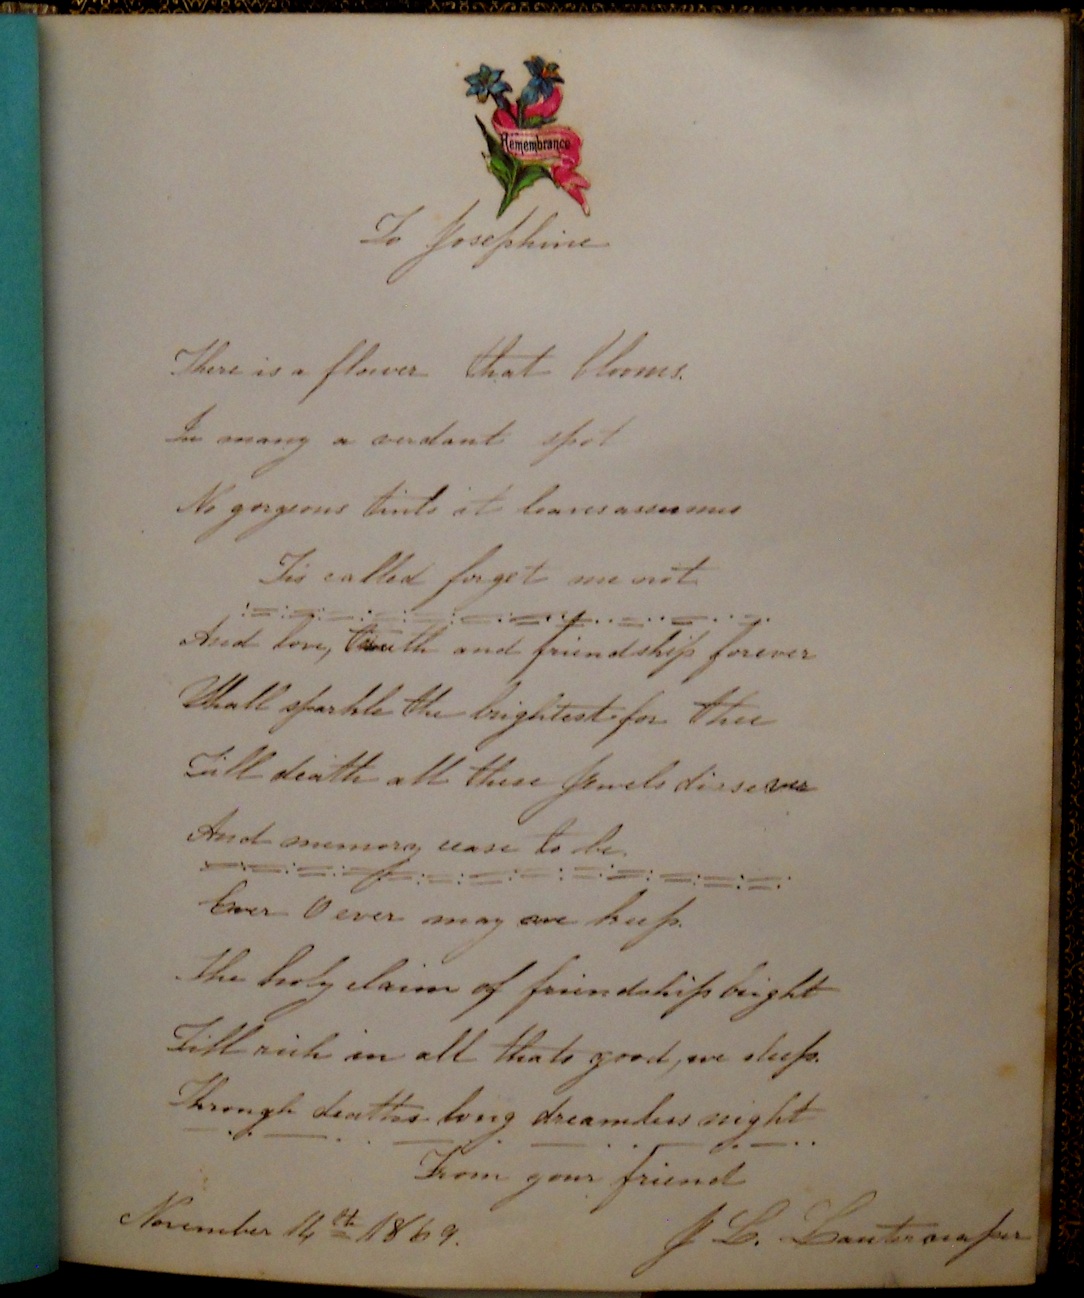 Remembrance
To Josephine
There is a flower that blooms.
In many a verdant spot
No gorgeous tints it leaves assumes
Tis called forget me not
And love, truth and friendship forever
Shall sparkle the brightest for thee
Till death all these Jewels dissever
And memory cease to be.
Ever O ever may we keep.
The holy claim of friendship bright
Till rich in all thats good, we sleep.
Through deaths long dreamless night
From your friend
November 14th 1869.
J L.